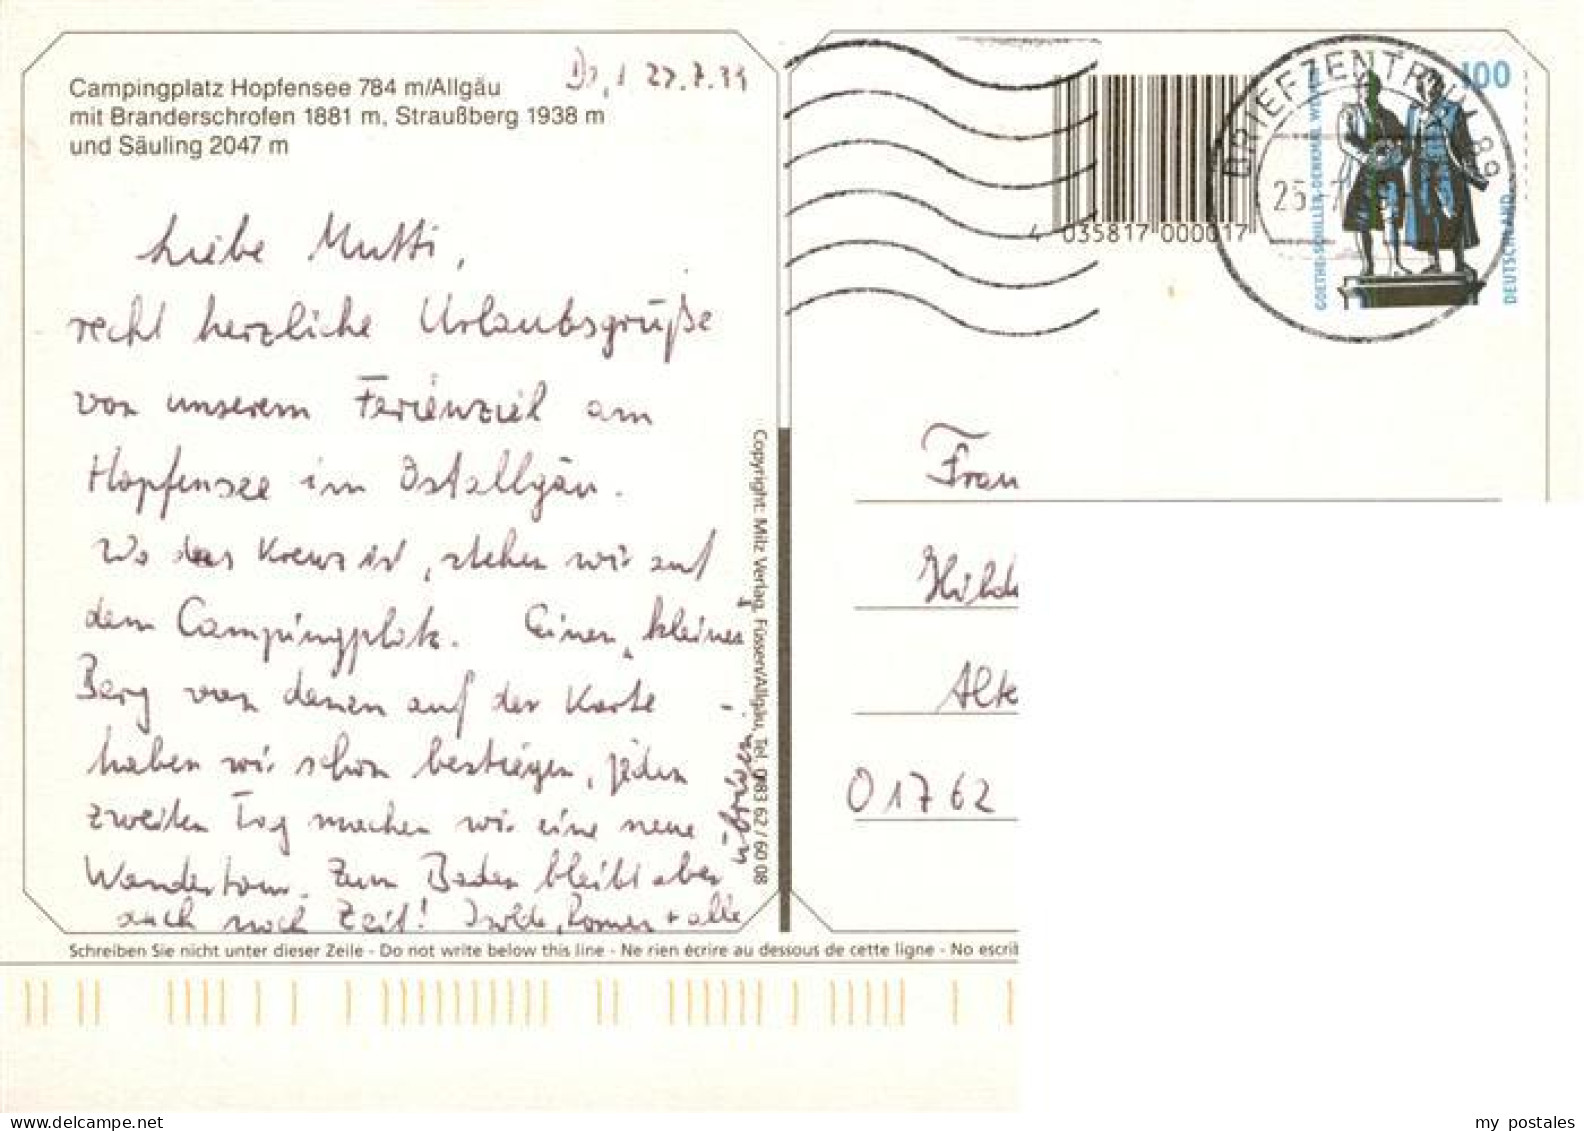 Campingplatz Hopfensee 784 m/Allgäu
mit Branderschrofen 1881 m, Straußberg 1938 m
und Säuling 2047 m
27.7.99
Liebe Mutti,
recht herzliche Urlaubsgrüße
von unserem Ferienziel am
Hopfensee im Ostallgäu.
Wo das Kreuz ist, stehen wir auf
dem Campingplatz. Einen „kleinen"
Berg von denen auf der Karte -
haben wir schon bestiegen, jeden
zweiten Tag machen wir eine neue
Wandertour. Zum Baden bleibt aber
auch noch Zeit! Isolde, + alle
übrigen
Schreiben Sie nicht unter dieser Zeile - Do not write below this line - Ne rien écrire au dessous de cette ligne - No escrib
Copyright: Milz Verlag, Füssen/Allgäu, Tel. 083 62 / 60 08
4 035817 000017
BRIEFZENTRUM 89
100
GOETHE-SCHILLER-DENKMAL WEIMAR
DEUTSCHLAND
Frau
Hilde
Alte
01762
my postales